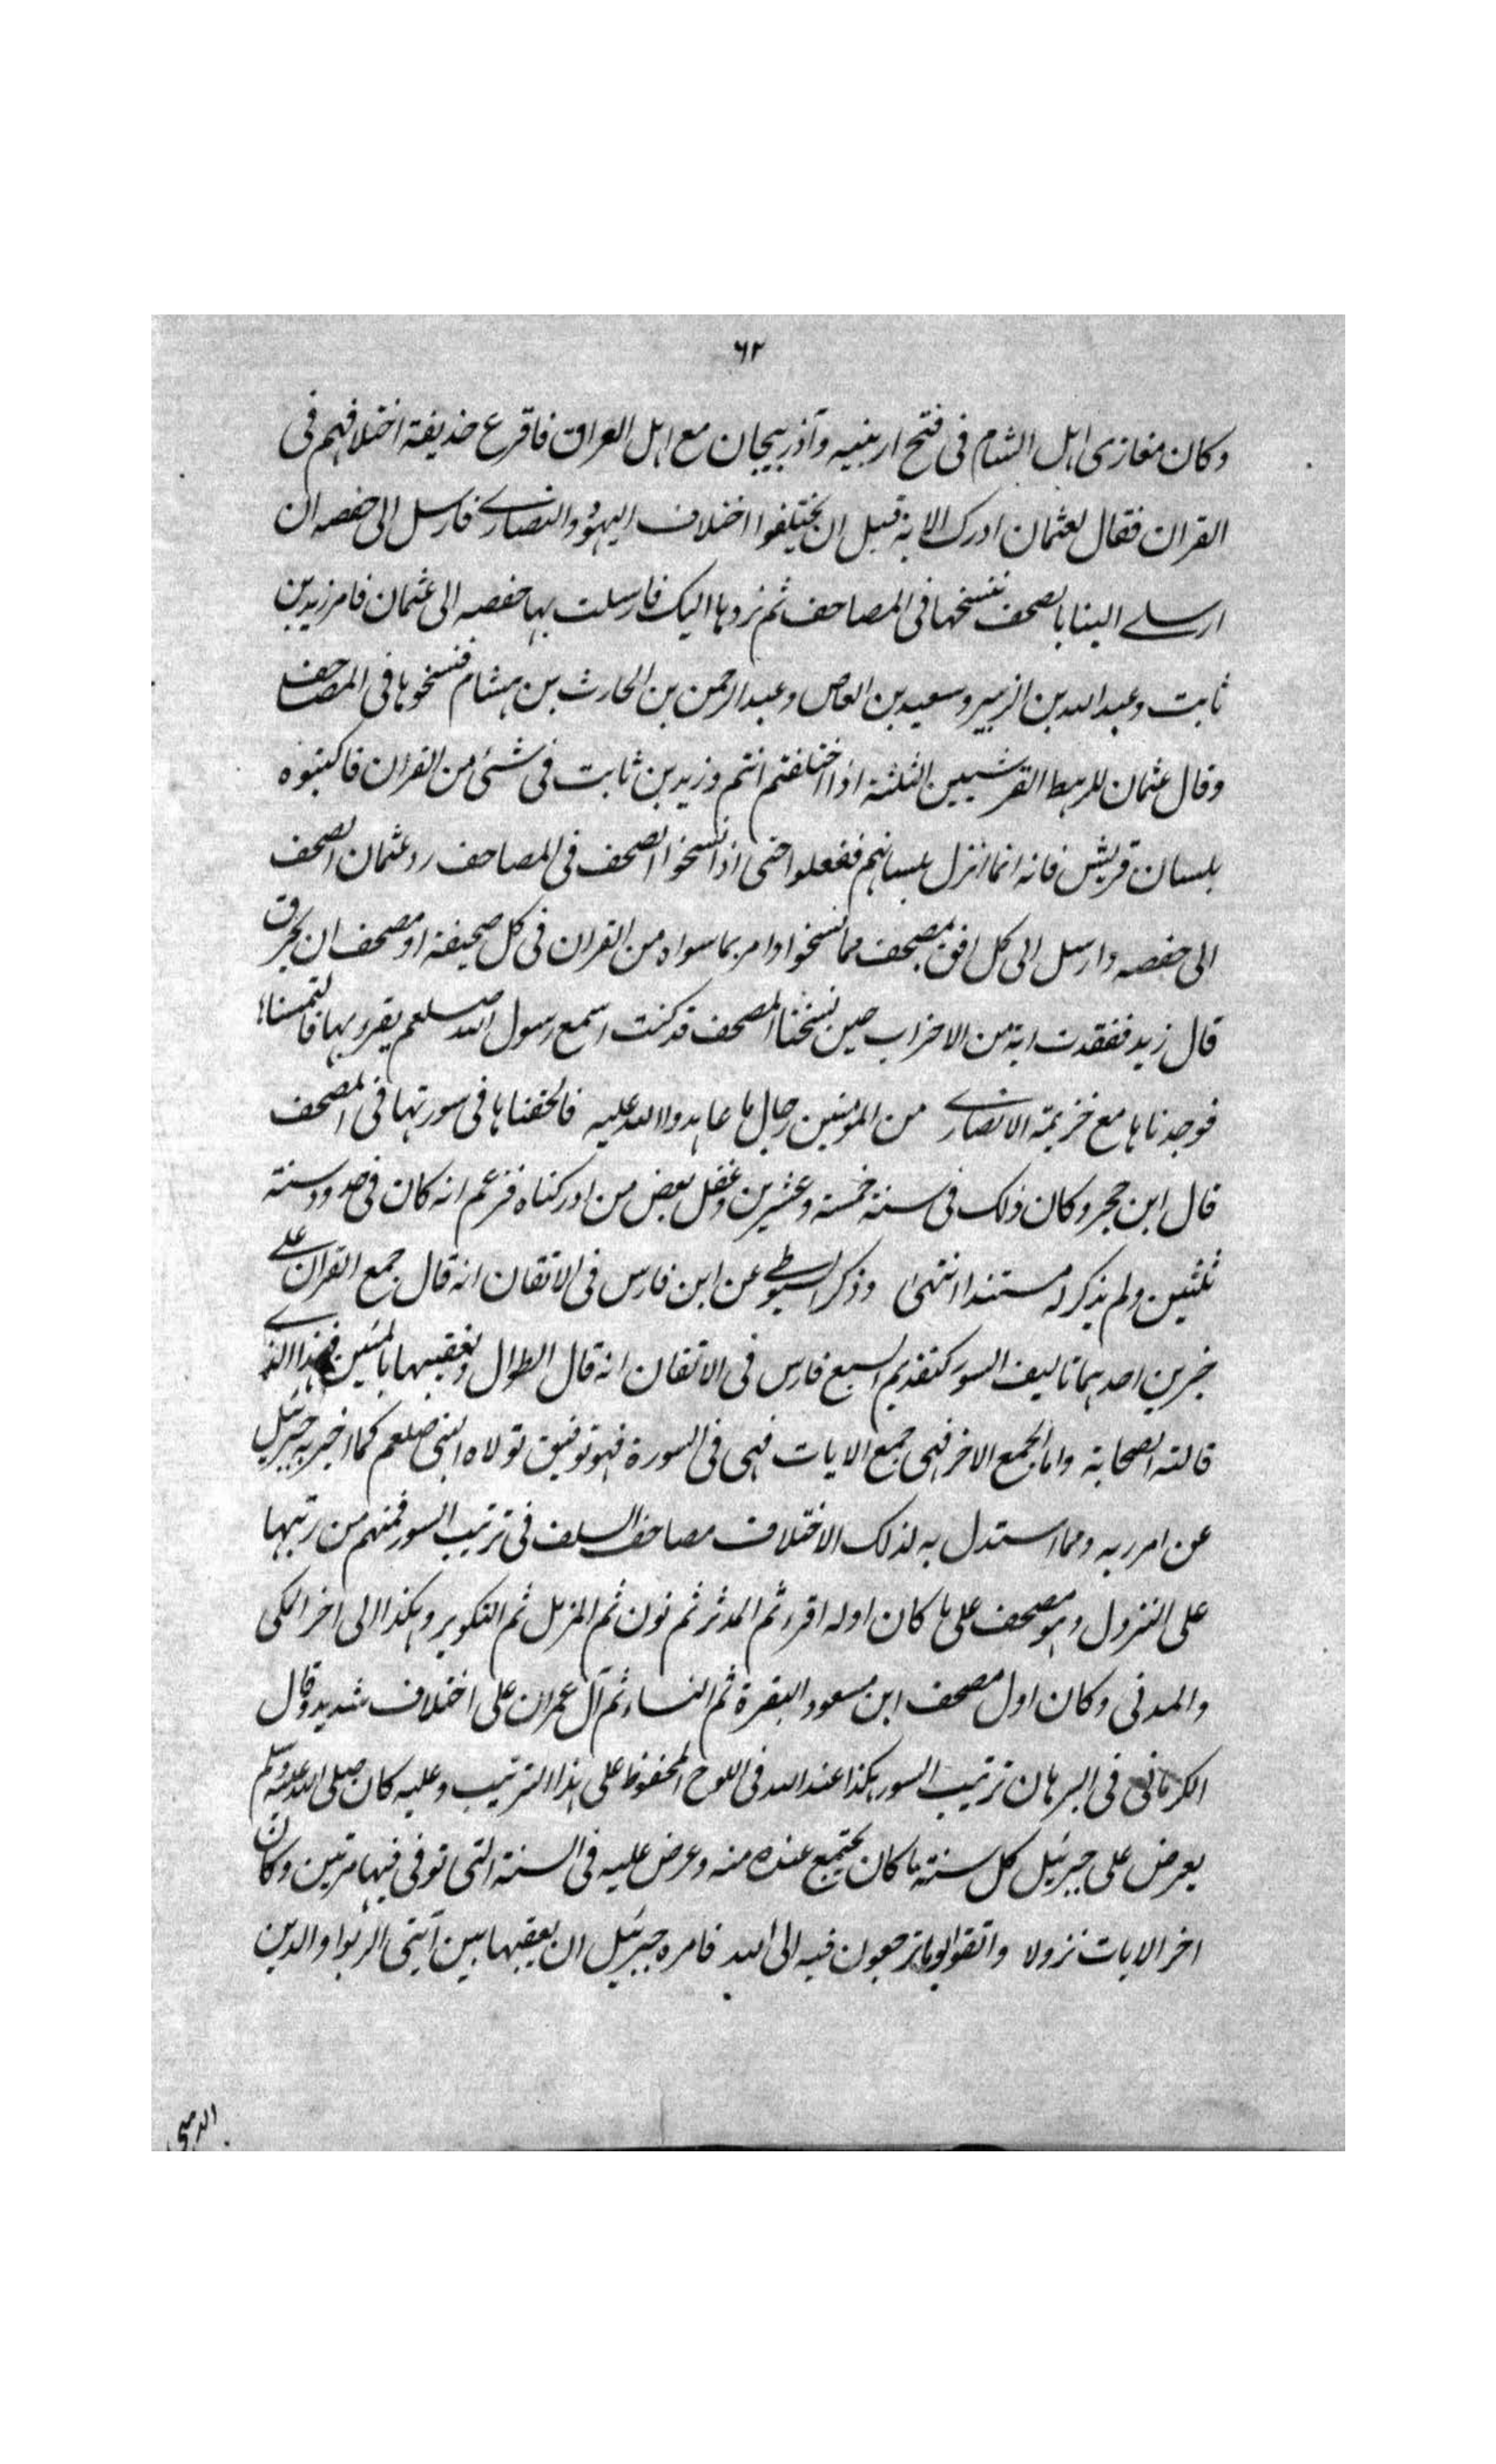 ٦٢
وكان مغازى اهل الشام فى فتح ارمينيه وآذربيجان مع اهل العراق فاقرع حذيفة اختلافهم فى
القران فقال لعثمان ادرك الابة قبل ان يختلفوا اختلاف اليهود والنصارے فارسل الى حفصه ان
ارسلے الينا بالصحف ننسخها فى المصاحف ثم نردها اليك فارسلت بها حفصه الى عثمان فامر زيد بن
ثابت وعبد الله بن الزبير وسعيد بن العاص وعبد الرحمن بن الحارث بن هشام فنسخوها فى المصاحف
وقال عثمان للرهط القرشيين الثلثة اذا اختلفتم انتم وزيد بن ثابت فى شئ من القران فاكتبوه
بلسان قريش فانه انما انزل بلسانهم ففعلوا حتى اذا نسخوا الصحف فى المصاحف رد عثمان الصحف
الى حفصه وارسل الى كل افق بمصحف مما نسخوا وامر بما سواه من القران فى كل صحيفة او مصحف ان يحرق
قال زيد ففقدت اية من الاحزاب حين نسخنا المصحف قد كنت اسمع رسول الله صلعم يقرء بها فالتمسناها
فوجدناها مع خزيمة الانصارے من المؤمنين رجال ما عاهدوا الله عليه فالحقناها فى سورتها فى المصحف
قال ابن حجر وكان ذلك فى سنة خمسة وعشرين وغفل بعض من ادركناه فزعم انه كان فى حدود سنة
ثلثين ولم يذكر له مستندا انتهى وذكر السيوطے عن ابن فارس فى الاتقان انه قال جمع القران علے
خبرين احدهما تاليف السور كتقديم السبع فارس فى الاتقان انه قال الطوال وتعقيبها بالمئين فهذا الذے
قالته الصحابة واما الجمع الاخر فهى جمع الايات فهى فى السورة فهو توفيق تولاه النبى صلعم كما اخبر به جبرئيل
عن امر ربه ومما استدل به لذلك الاختلاف مصاحف السلف فى ترتيب السور فمنهم من رتبها
على النزول وهو مصحف على ما كان اوله اقرء ثم المدثر ثم نون ثم المزمل ثم التكوير وهكذا الى اخر المكى
والمدنى وكان اول مصحف ابن مسعود البقرة ثم النساء ثم آل عمران على اختلاف شديد وقال
الكرمانى فى البرهان ترتيب السور هكذا عند الله فى اللوح المحفوظ على هذا الترتيب وعليه كان صلى الله عليه وسلم
يعرض على جبرئيل كل سنة ما كان يجتمع عنده منه وعرض عليه فى السنة التى توفى فيها مرتين وكان
اخر الايات نزولا واتقوا يوما ترجعون فيه الى الله فامره جبرئيل ان يعقبها بين آيتى الربوا والدين